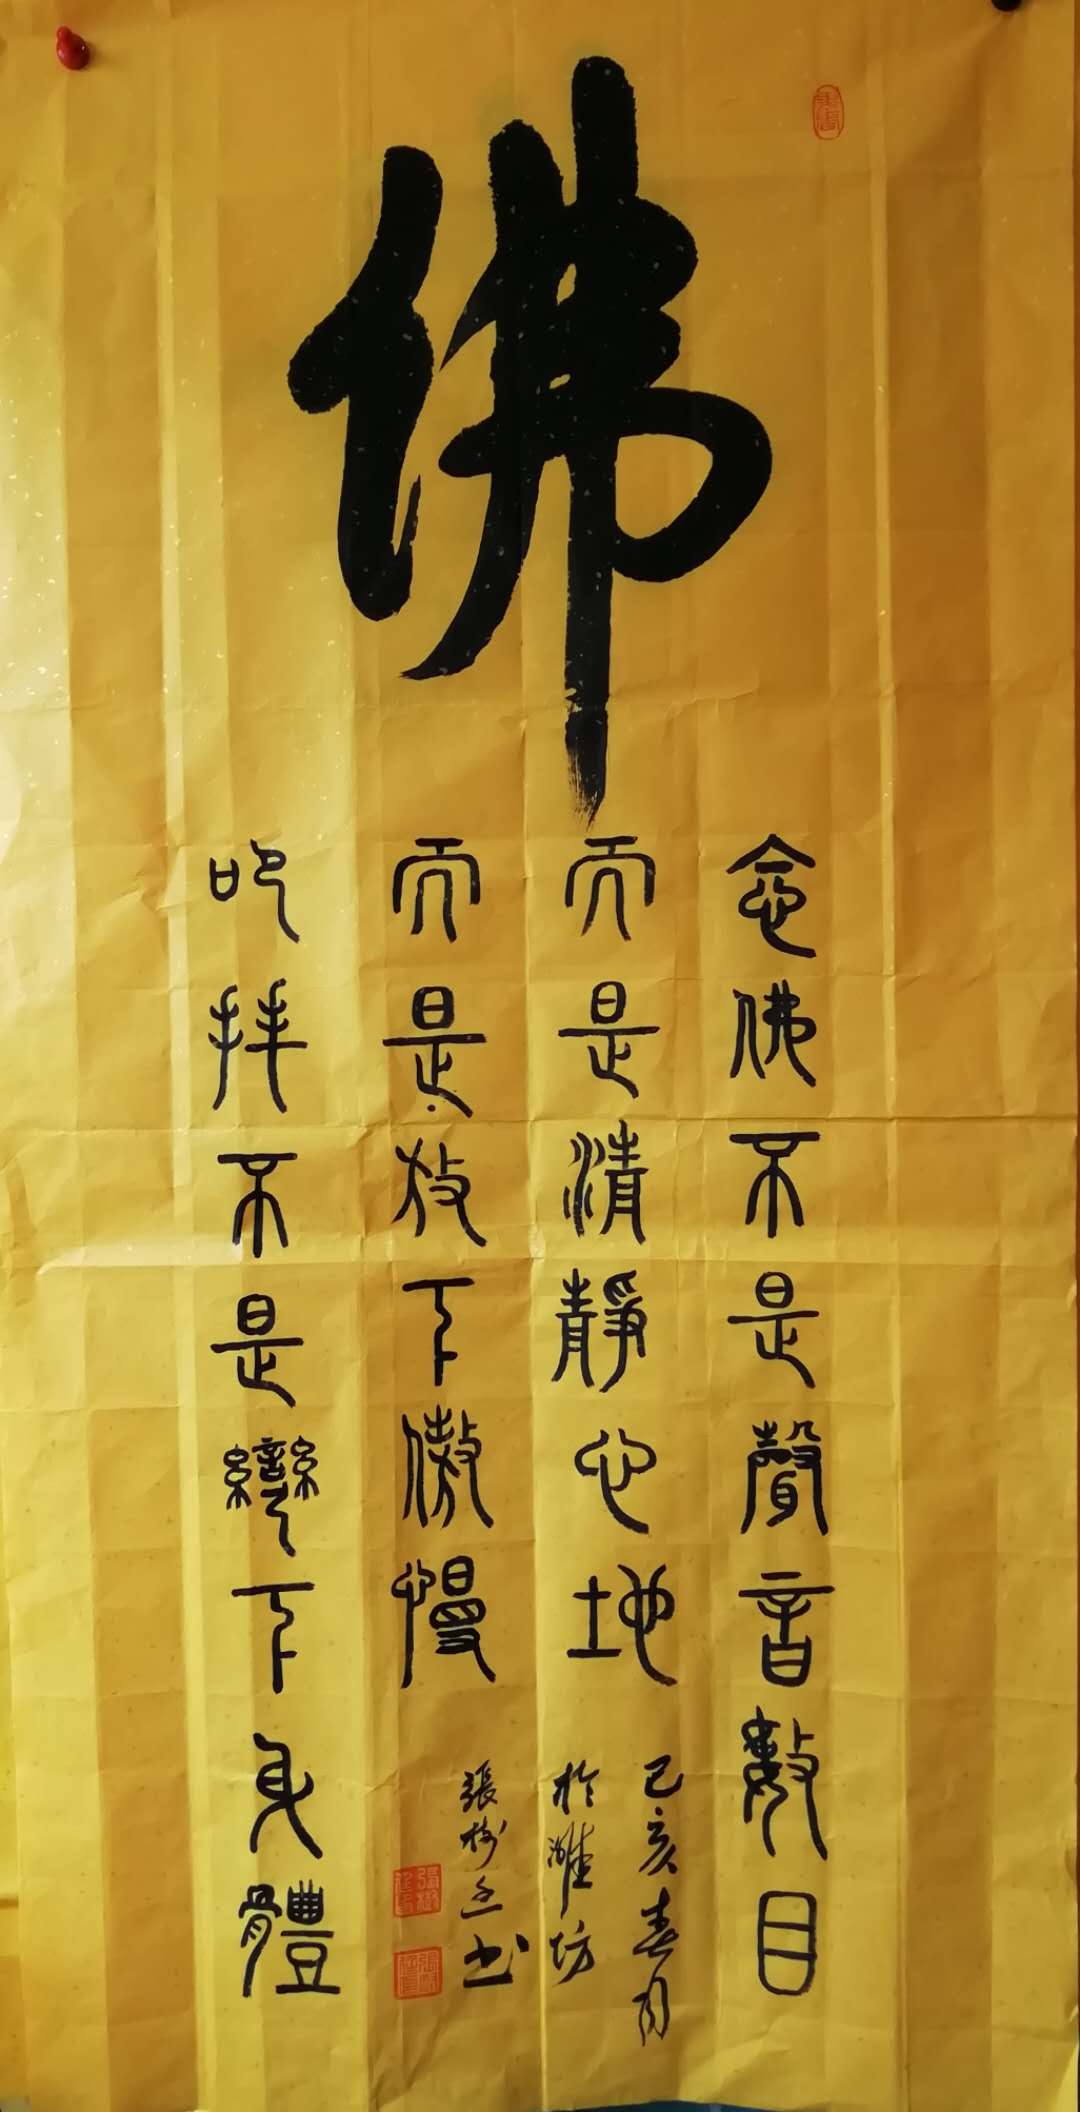 佛
念佛不是聲音數目
而是清靜心地
叩拜不是彎下身體
而是放下傲慢
己亥春月
於濰坊
張樹書